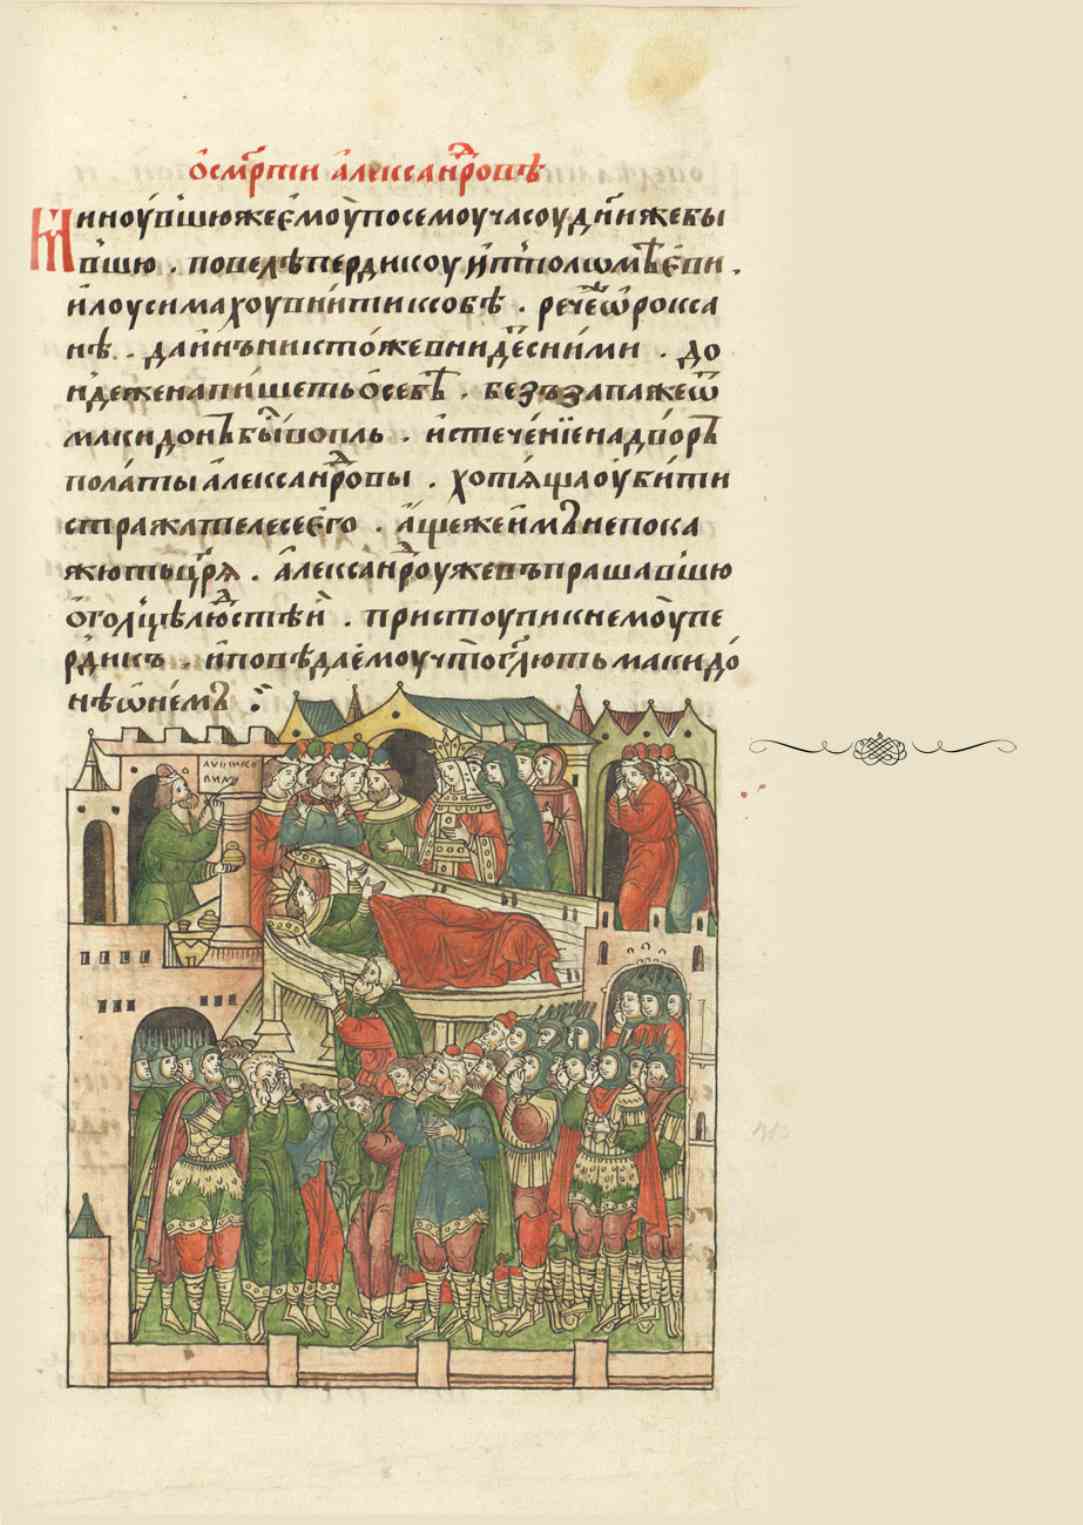 ѡ смр҃ти алеѯандровѣ
Миноувшю же емоу по семоу часоу днїи же бы
вшю . повелѣ пердикоу и птоломѣеви .
и лоусимахоу внити к собѣ . рече ѡ рокса
нѣ . да инъ никтоже внидет с ними . до
ндеже напишеть о себѣ . безъзапа же ѿ
македонѣ бы вопль . и стечение на дворѣ
полаты александровы . хотяща оубити
стража телесе его . аще же имъ не пока
жють цр҃я . александроу же въпрашавшю
о голцѣ людстѣи . пристоупи к немоу пе
рдикъ . и поведа емоу что гл҃ють македо
нѣ ѡ немъ :